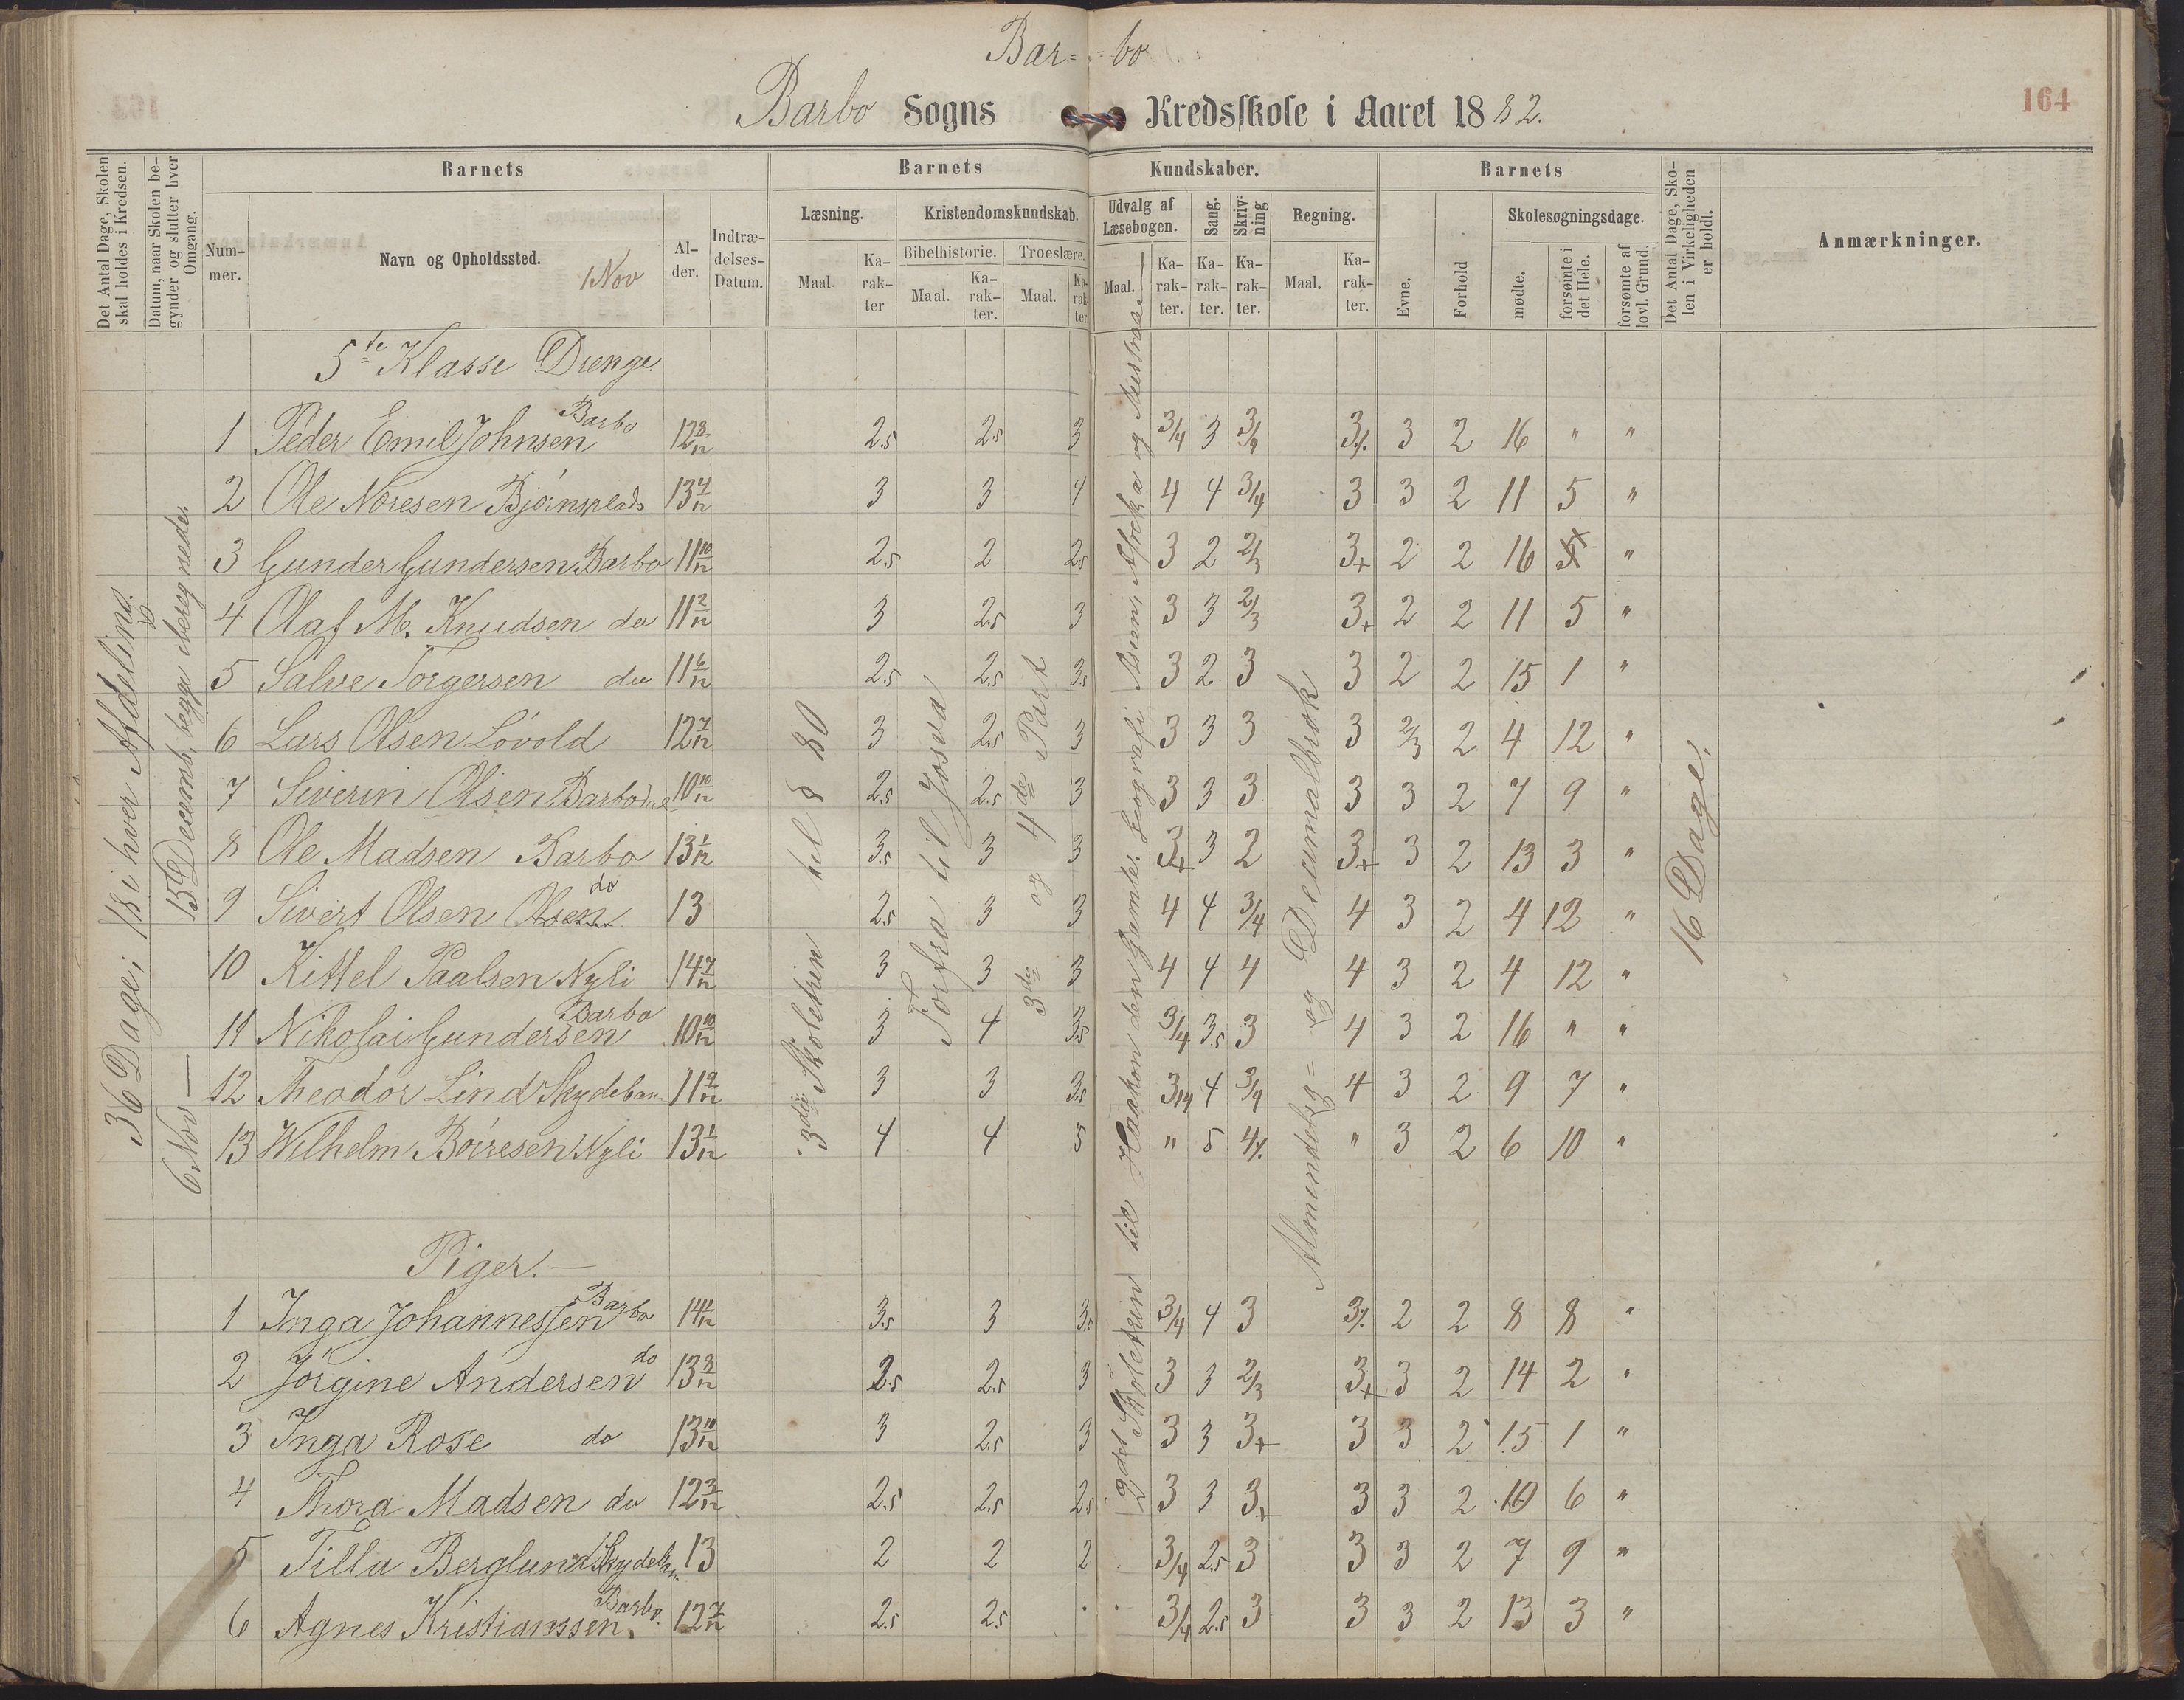 Bar= =bo
Barbo Sogns Kredsskole i Aaret 1882.
164
Det Antal Dage, Skolen skal holdes i Kredsen.
Datum, naar Skolen begynder og slutter hver Omgang.
Barnets
Nummer.
Navn og Opholdssted. 1 Nov
Alder.
Indtrædelses-Datum.
Barnets Kundskaber.
Læsning.
Maal. Karakter
Kristendomskundskab.
Bibelhistorie. Troeslære.
Maal. Karakter. Maal. Karakter.
Udvalg af Læsebogen.
Maal. Karakter.
Sang. Karakter.
Skrivning Karakter.
Regning.
Maal. Karakter.
Barnets
Evne. Forhold
Skolesøgningsdage.
mødte. forsømte i det Hele. forsømte af lovl. Grund.
Det Antal Dage, Skolen i Virkeligheden er holdt.
Anmærkninger.
36 Dage i 18 i hver Afdeling.
6 Nov — 15 Decemb, begge iberegnede.
3die Skoletrin til § 80
Forfra til Josva
3die og 4de Part
2det Skoletrin til Haakon den Gamle. Geografi Asien, Afrika og
Almindelig= og Decimalbrøk
16 Dage.
5te Klasse Drenge.
1 Peder Emil Johnsen Barbo 12 8/12 2.5 2.5 3 3/4 3 3/4 3% 3 2 16 " "
2 Ole Noresen Bjørnsplads 13 4/12 3 3 4 4 4 3/4 3 3 2 11 5 "
3 Gunder Gundersen Barbo 11 10/12 2.5 2 2.5 3 2 2/3 3+ 2 2 16 5 "
4 Olaf M. Knudsen do 11 2/12 3 2.5 3 3 3 2/3 3+ 2 2 11 5 "
5 Salve Torgersen do 11 6/12 2.5 2.5 3.5 3 2 3 3 2 2 15 1 "
6 Lars Olsen Løvold 12 7/12 3 2.5 3 3 3 3 3 2/3 2 4 12 "
7 Siverin Olsen 10 10/12 2.5 2.5 3 3 3 3 3 3 2 7 9 "
8 Ole Madsen Barbo 13 1/12 3.5 3 3 3+ 3 2 3+ 3 2 13 3 "
9 Sivert Olsen Olsen do 13 2.5 3 3 4 4 3/4 4 3 2 4 12 "
10 Kittel Paalsen Nyli 14 7/12 3 3 3 4 4 4 4 3 2 4 12 "
11 Nikolai Gundersen Barbo 10 10/12 3 4 3.5 3/4 3.5 3 4 3 2 16 " "
12 Theodor Lind Skydeban 11 9/12 3 3 3.5 3/4 4 3/4 4 3 2 9 7 "
13 Wilhelm Børresen Nyli 13 1/12 4 4 5 " 5 4% " 3 2 6 10 "
Piger. —
1 Inga Johannessen Barbo 14 1/12 3.5 3 3.5 3/4 4 3 3% 2 2 8 8 "
2 Jørgine Andersen do 13 8/12 2.5 2.5 3 3 3 2/3 3+ 3 2 14 2 "
3 Inga Rose do 13 10/12 3 2.5 3 3 3 3+ 3 3 2 15 1 "
4 Thora Madsen do 12 3/12 2.5 2.5 2.5 3 3 3+ 3 3 2 10 6 "
5 Tilla Berglund Skydebn. 13 2 2 2 3/4 2.5 3 3 3 2 7 9 "
6 Agnes Kristianssen. Barbo. 12 7/12 2.5 2.5 3/4 2.5 3 3 3 2 13 3 "